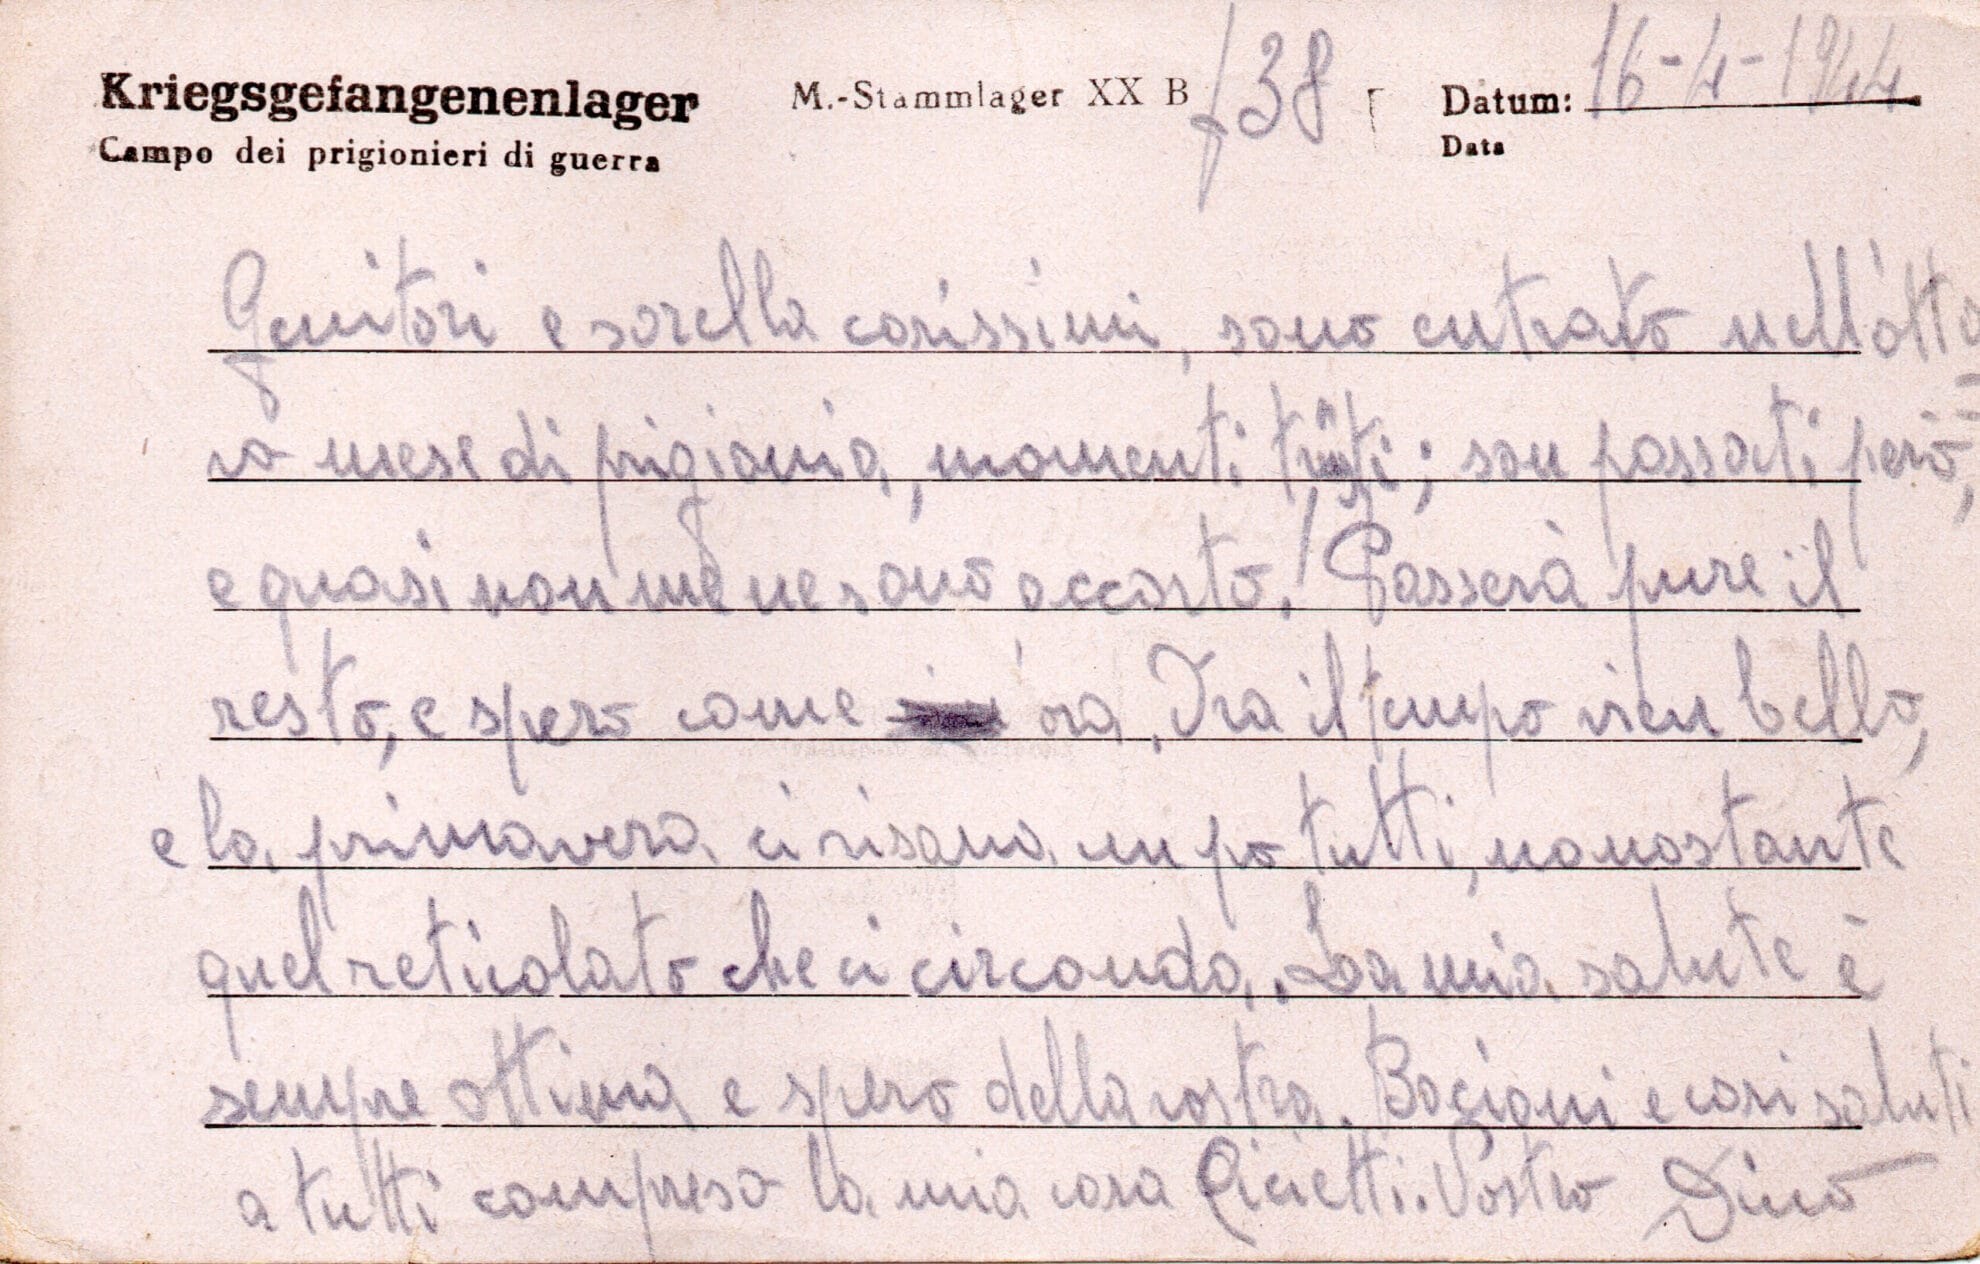 Kriegsgefangenenlager M.-Stammlager XX B 138 Datum: 16-4-1944
Campo dei prigionieri di guerra Data
Genitori e sorella carissimi, sono entrato nell'otta=
vo mese di prigionia, momenti tristi; son passati però,
e quasi non me ne sono accorto! Passerà pure il
resto, e spero come ora. Ira il tempo vien bello,
e la primavera ci risana un po tutti, nonostante
quel reticolato che ci circonda. La mia salute è
sempre ottima e spero della vostra. Bacioni e cari saluti
a tutti compreso la mia cara Vostro Dino